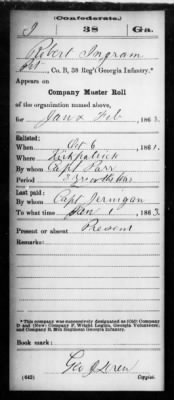 (Confederate.)
I 38 Ga.
Robert Ingram
Pvt., Co. B, 38 Reg't Georgia Infantry.*
Appears on
Company Muster Roll
of the organization named above,
for Jan & Feb, 1863.
Enlisted:
When Oct 6, 1861.
Where Kirkpatrick
By whom Capt Parr
Period 3 yrs or the War
Last paid:
By whom Capt Jernigan
To what time Jan 1, 1863.
Present or absent Present
Remarks:
*This company was successively designated as (Old) Company
D and (New) Company F, Wright Legion, Georgia Volunteers,
and Company B, 38th Regiment Georgia Infantry.
Book mark:
Geo J
(642) Copyist.